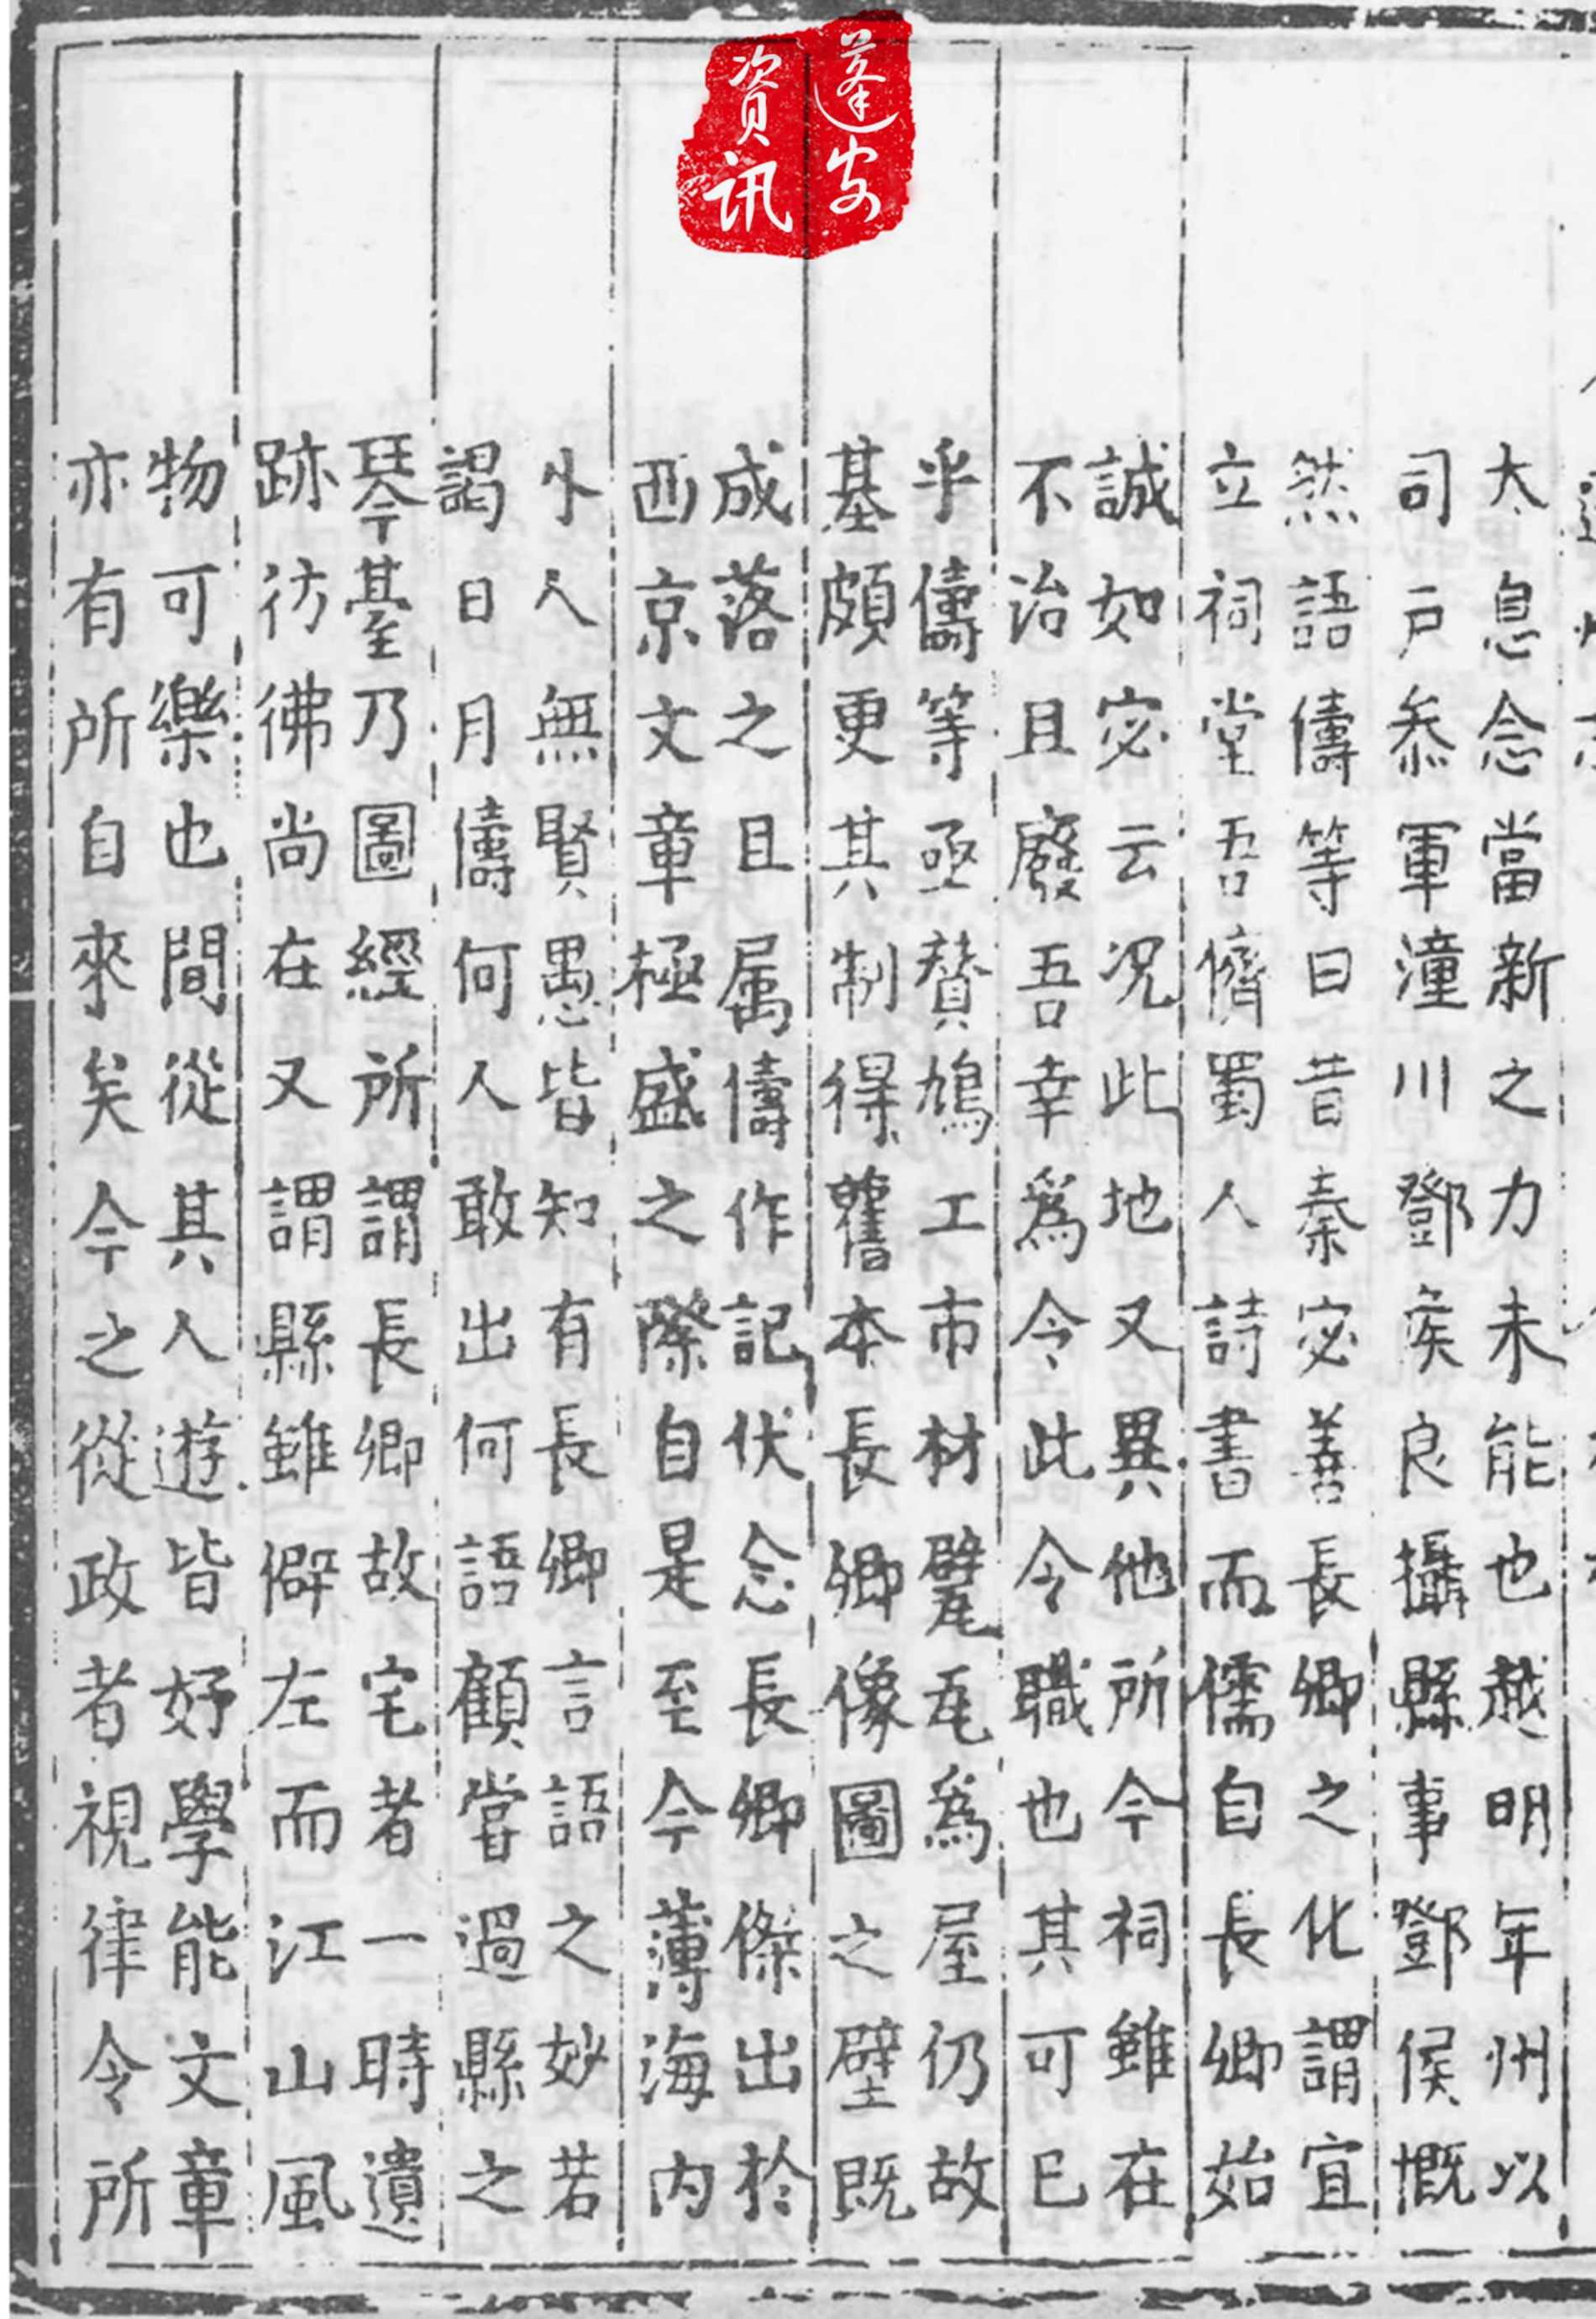 蓬安
資讯
太息念當新之力未能也越明年州以
司戸叅軍潼川鄧侯良攝縣事鄧侯慨
然語儔等曰昔秦宓善長卿之化謂宜
立祠堂吾儕蜀人詩書而儒自長卿始
誠如宓云况此地又異他所今祠雖在
不治且廢吾幸爲令此令職也其可已
乎儔等亟賛鳩工市材甓瓦爲屋仍故
基頗更其制得舊本長卿像圖之壁既
成落之且属儔作記伏念長卿傑出於
西京文章極盛之際自是至今薄海内
外人無賢愚皆知有長卿言語之妙若
謁日月儔何人敢出何語顧嘗過縣之
琴臺乃圖經所謂長卿故宅者一時遺
跡彷彿尚在又謂縣雖僻左而江山風
物可樂也間從其人遊皆好學能文章
亦有所自來矣今之從政者視律令所